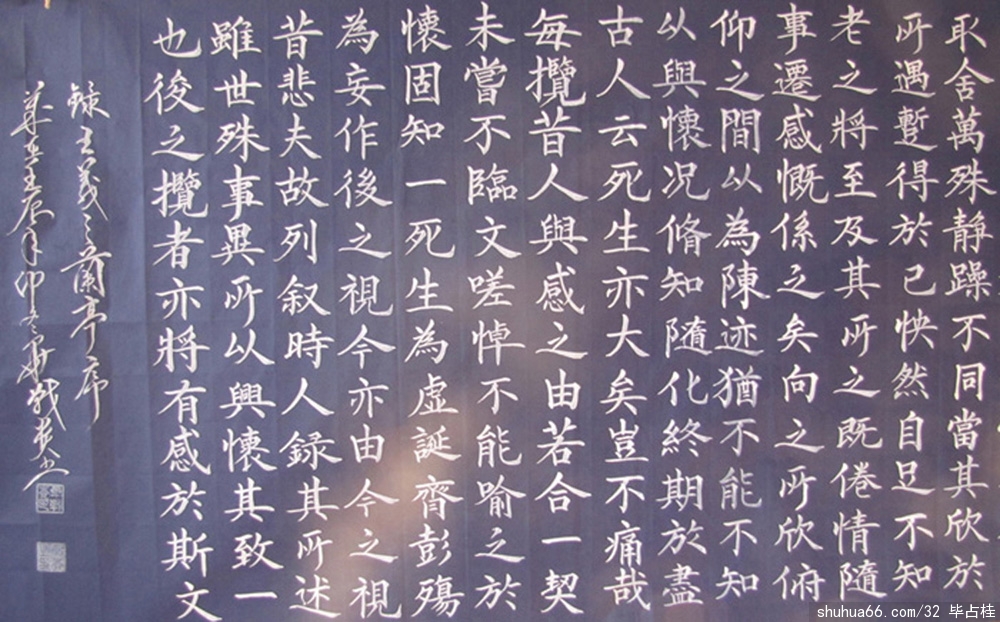 取舍萬殊静躁不同當其欣於
所遇暫得於己怏然自足不知
老之將至及其所之既倦情隨
事遷感慨係之矣向之所欣俯
仰之間以為陳迹猶不能不知
以與懷况脩知隨化終期於盡
古人云死生亦大矣豈不痛哉
每攬昔人與感之由若合一契
未嘗不臨文嗟悼不能喻之於
懷固知一死生為虚誕齊彭殤
為妄作後之視今亦由今之視
昔悲夫故列叙時人録其所述
雖世殊事異所以興懷其致一
也後之攬者亦將有感於斯文
録王羲之蘭亭序
shuhua66.com/32 毕占桂